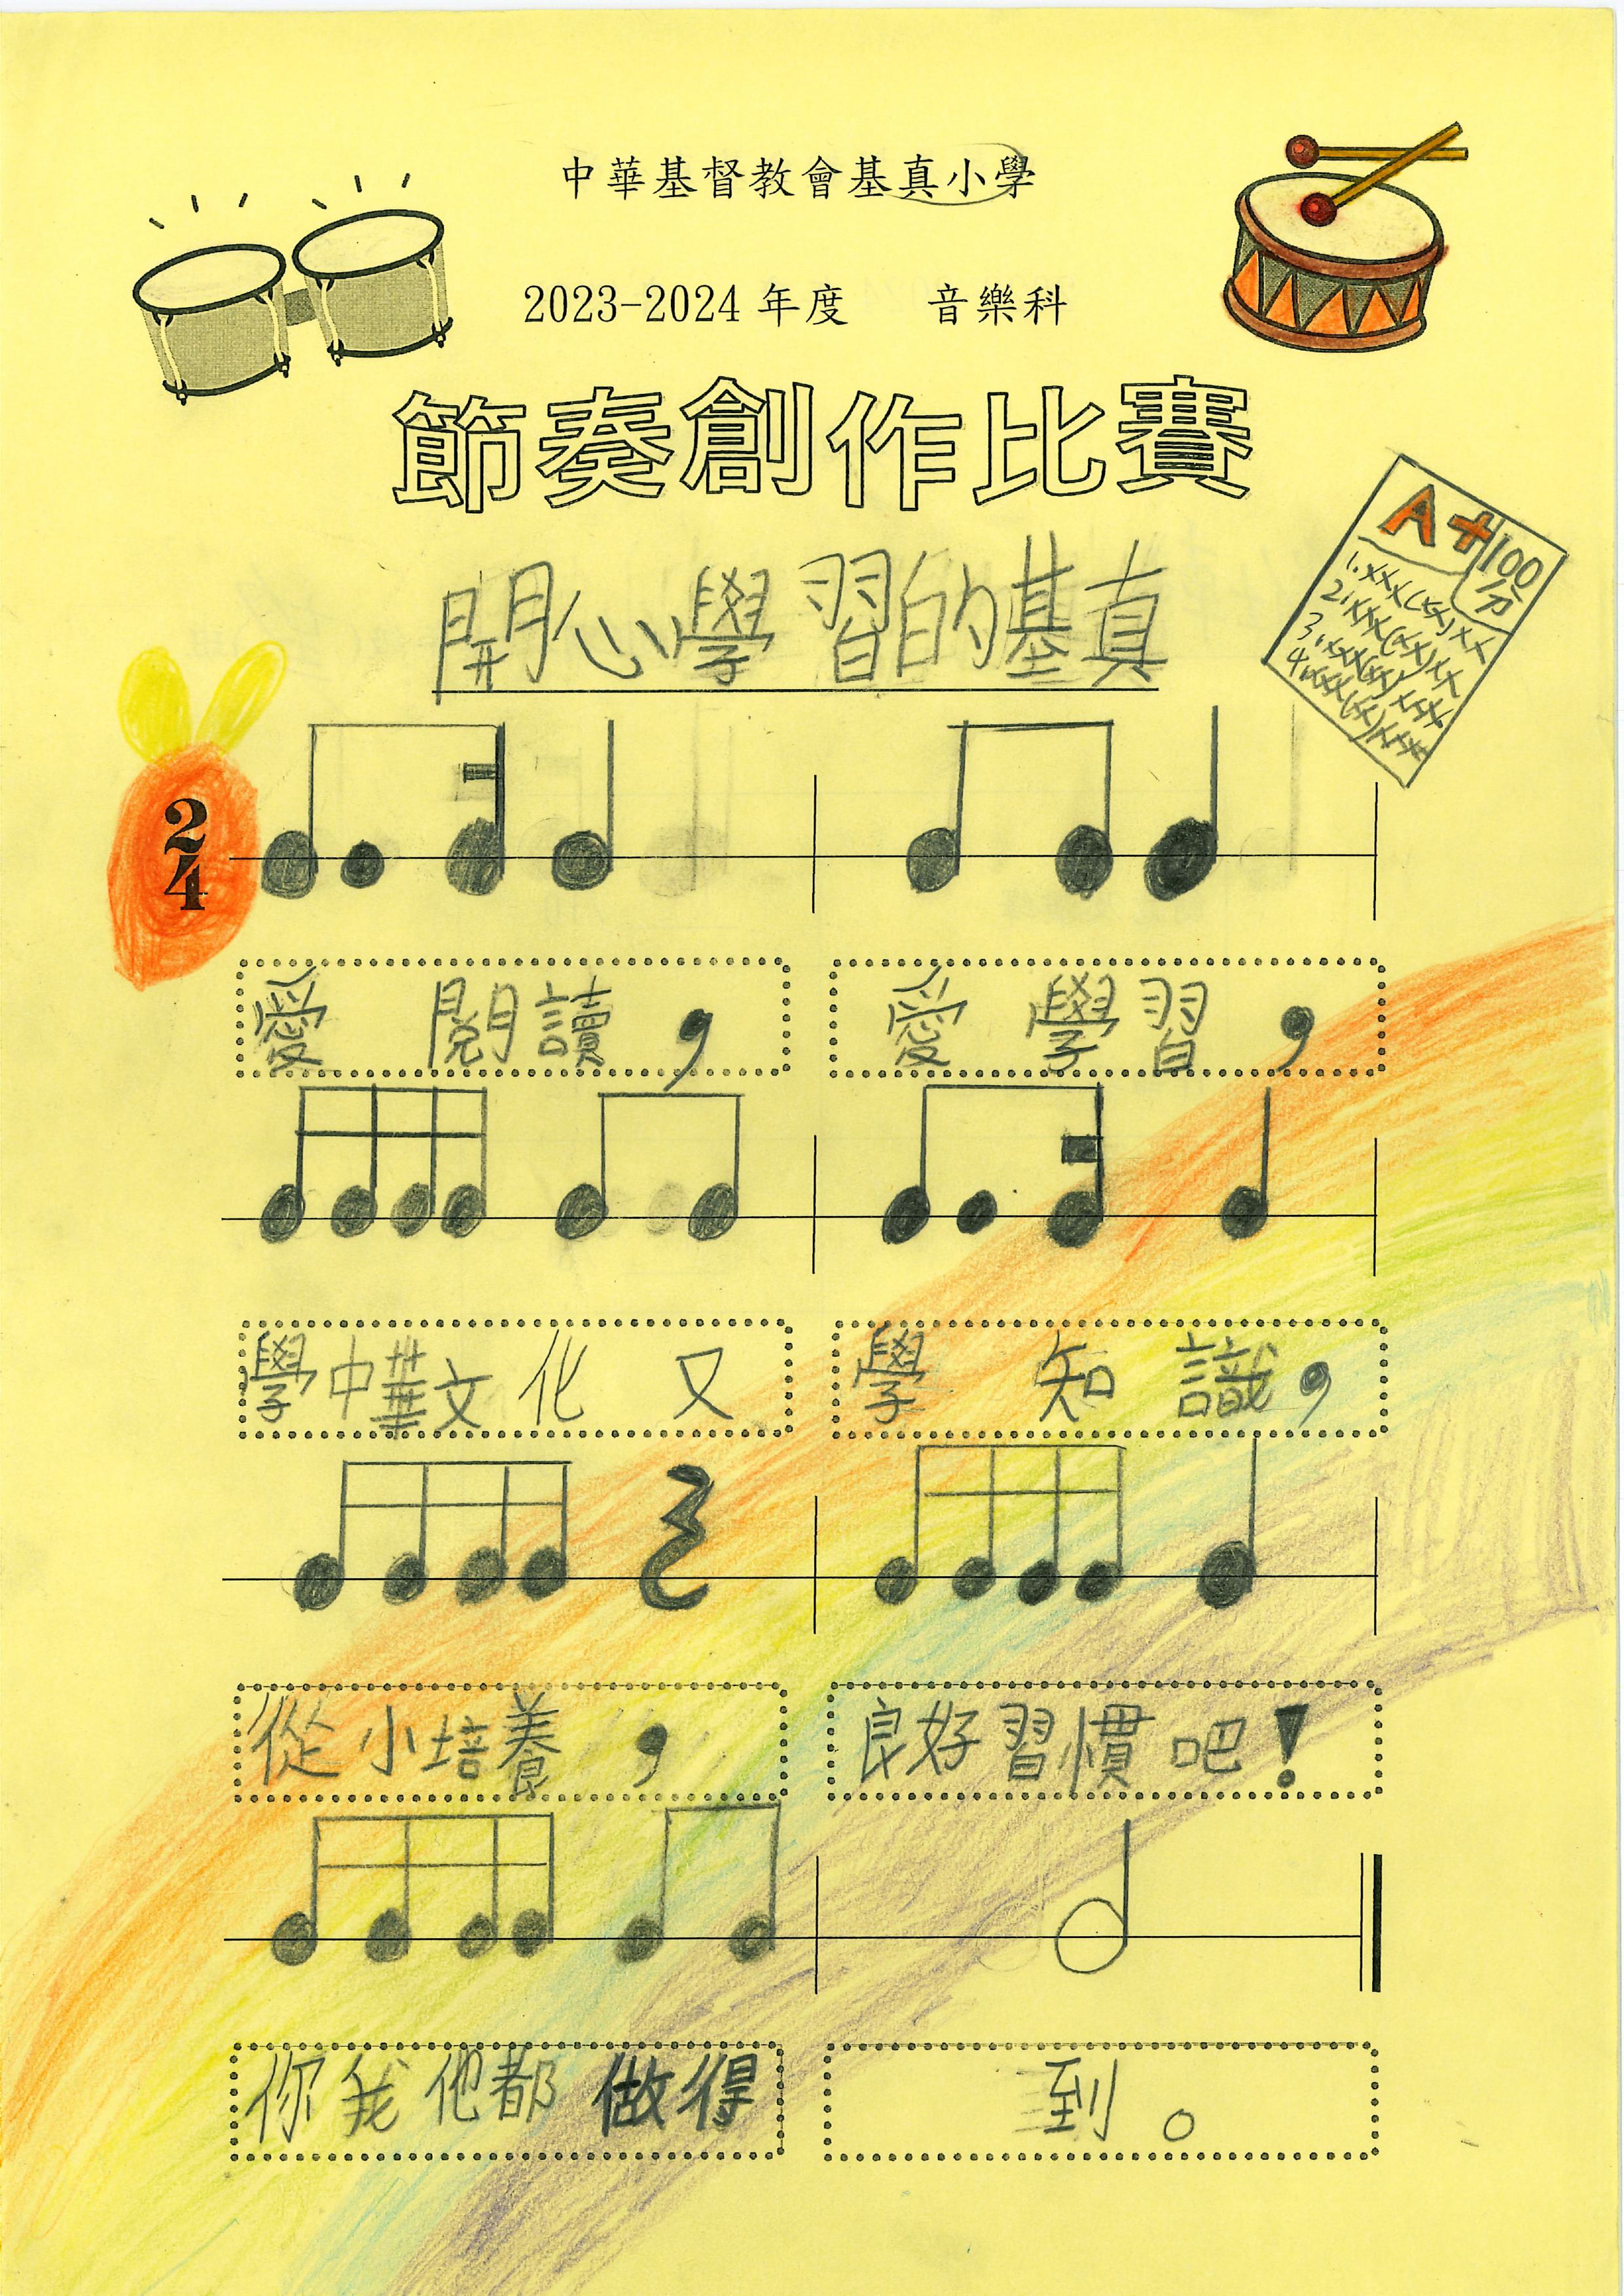 中華基督教會基真小學
2023-2024 年度 音樂科
節奏創作比賽
開心學習的基真
A+ 100分
1.xxx(xx)xx
2.xxx(xx)xx
3.xxx(xx)xxx
4.xxx(xx)xxx
2
4
愛 閱讀， 愛 學習，
學中華文化 又 學 知 識，
從小培養， 良好習慣吧！
你我他都做得 到。